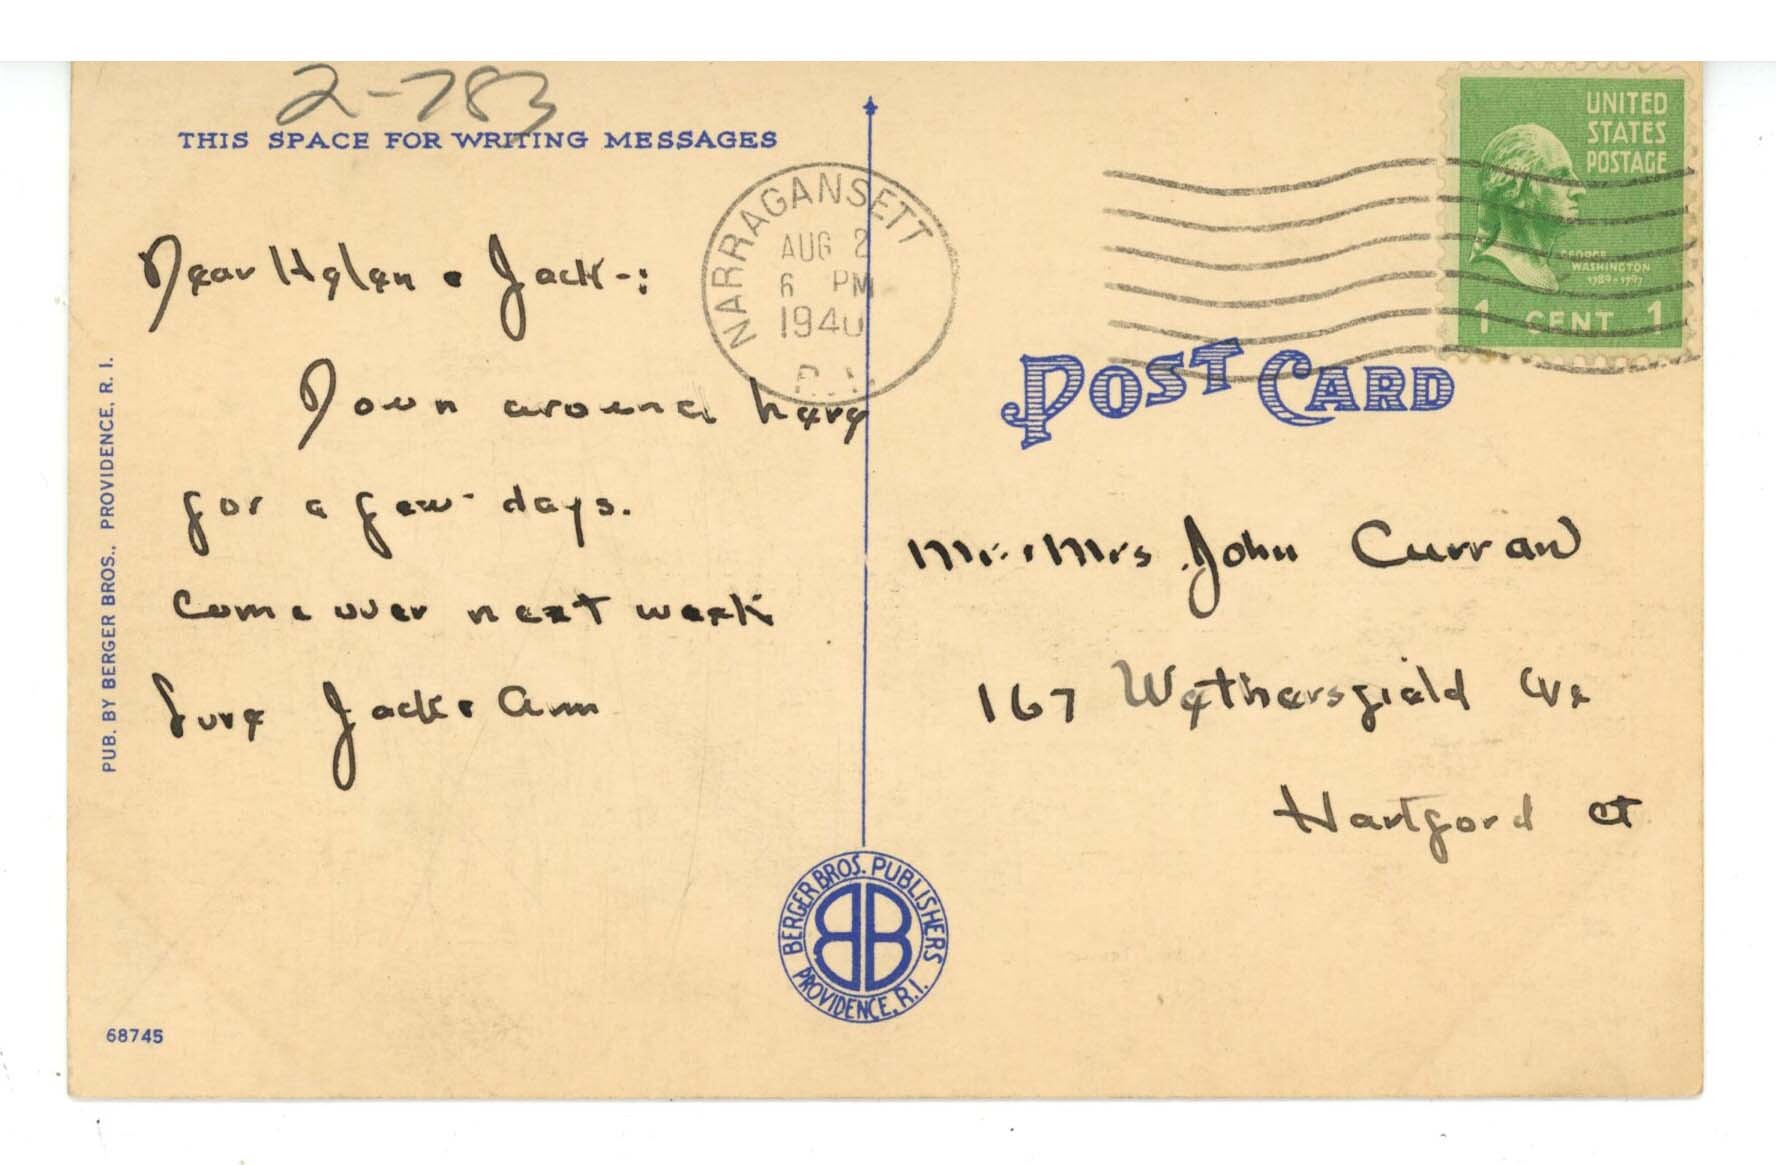 2-783
THIS SPACE FOR WRITING MESSAGES
Dear Helen & Jack-:
Down around here
for a few days.
Come over next week
Love Jack & Ann
NARRAGANSETT
AUG 2
6 PM
1940
R.I.
UNITED
STATES
POSTAGE
GEORGE
WASHINGTON
1789-1797
1 CENT 1
POST CARD
Mr. & Mrs John Curran
167 Wethersfield Ave
Hartford Ct
PUB. BY BERGER BROS., PROVIDENCE, R. I.
BERGER BROS. PUBLISHERS
BB
PROVIDENCE, R.I.
68745